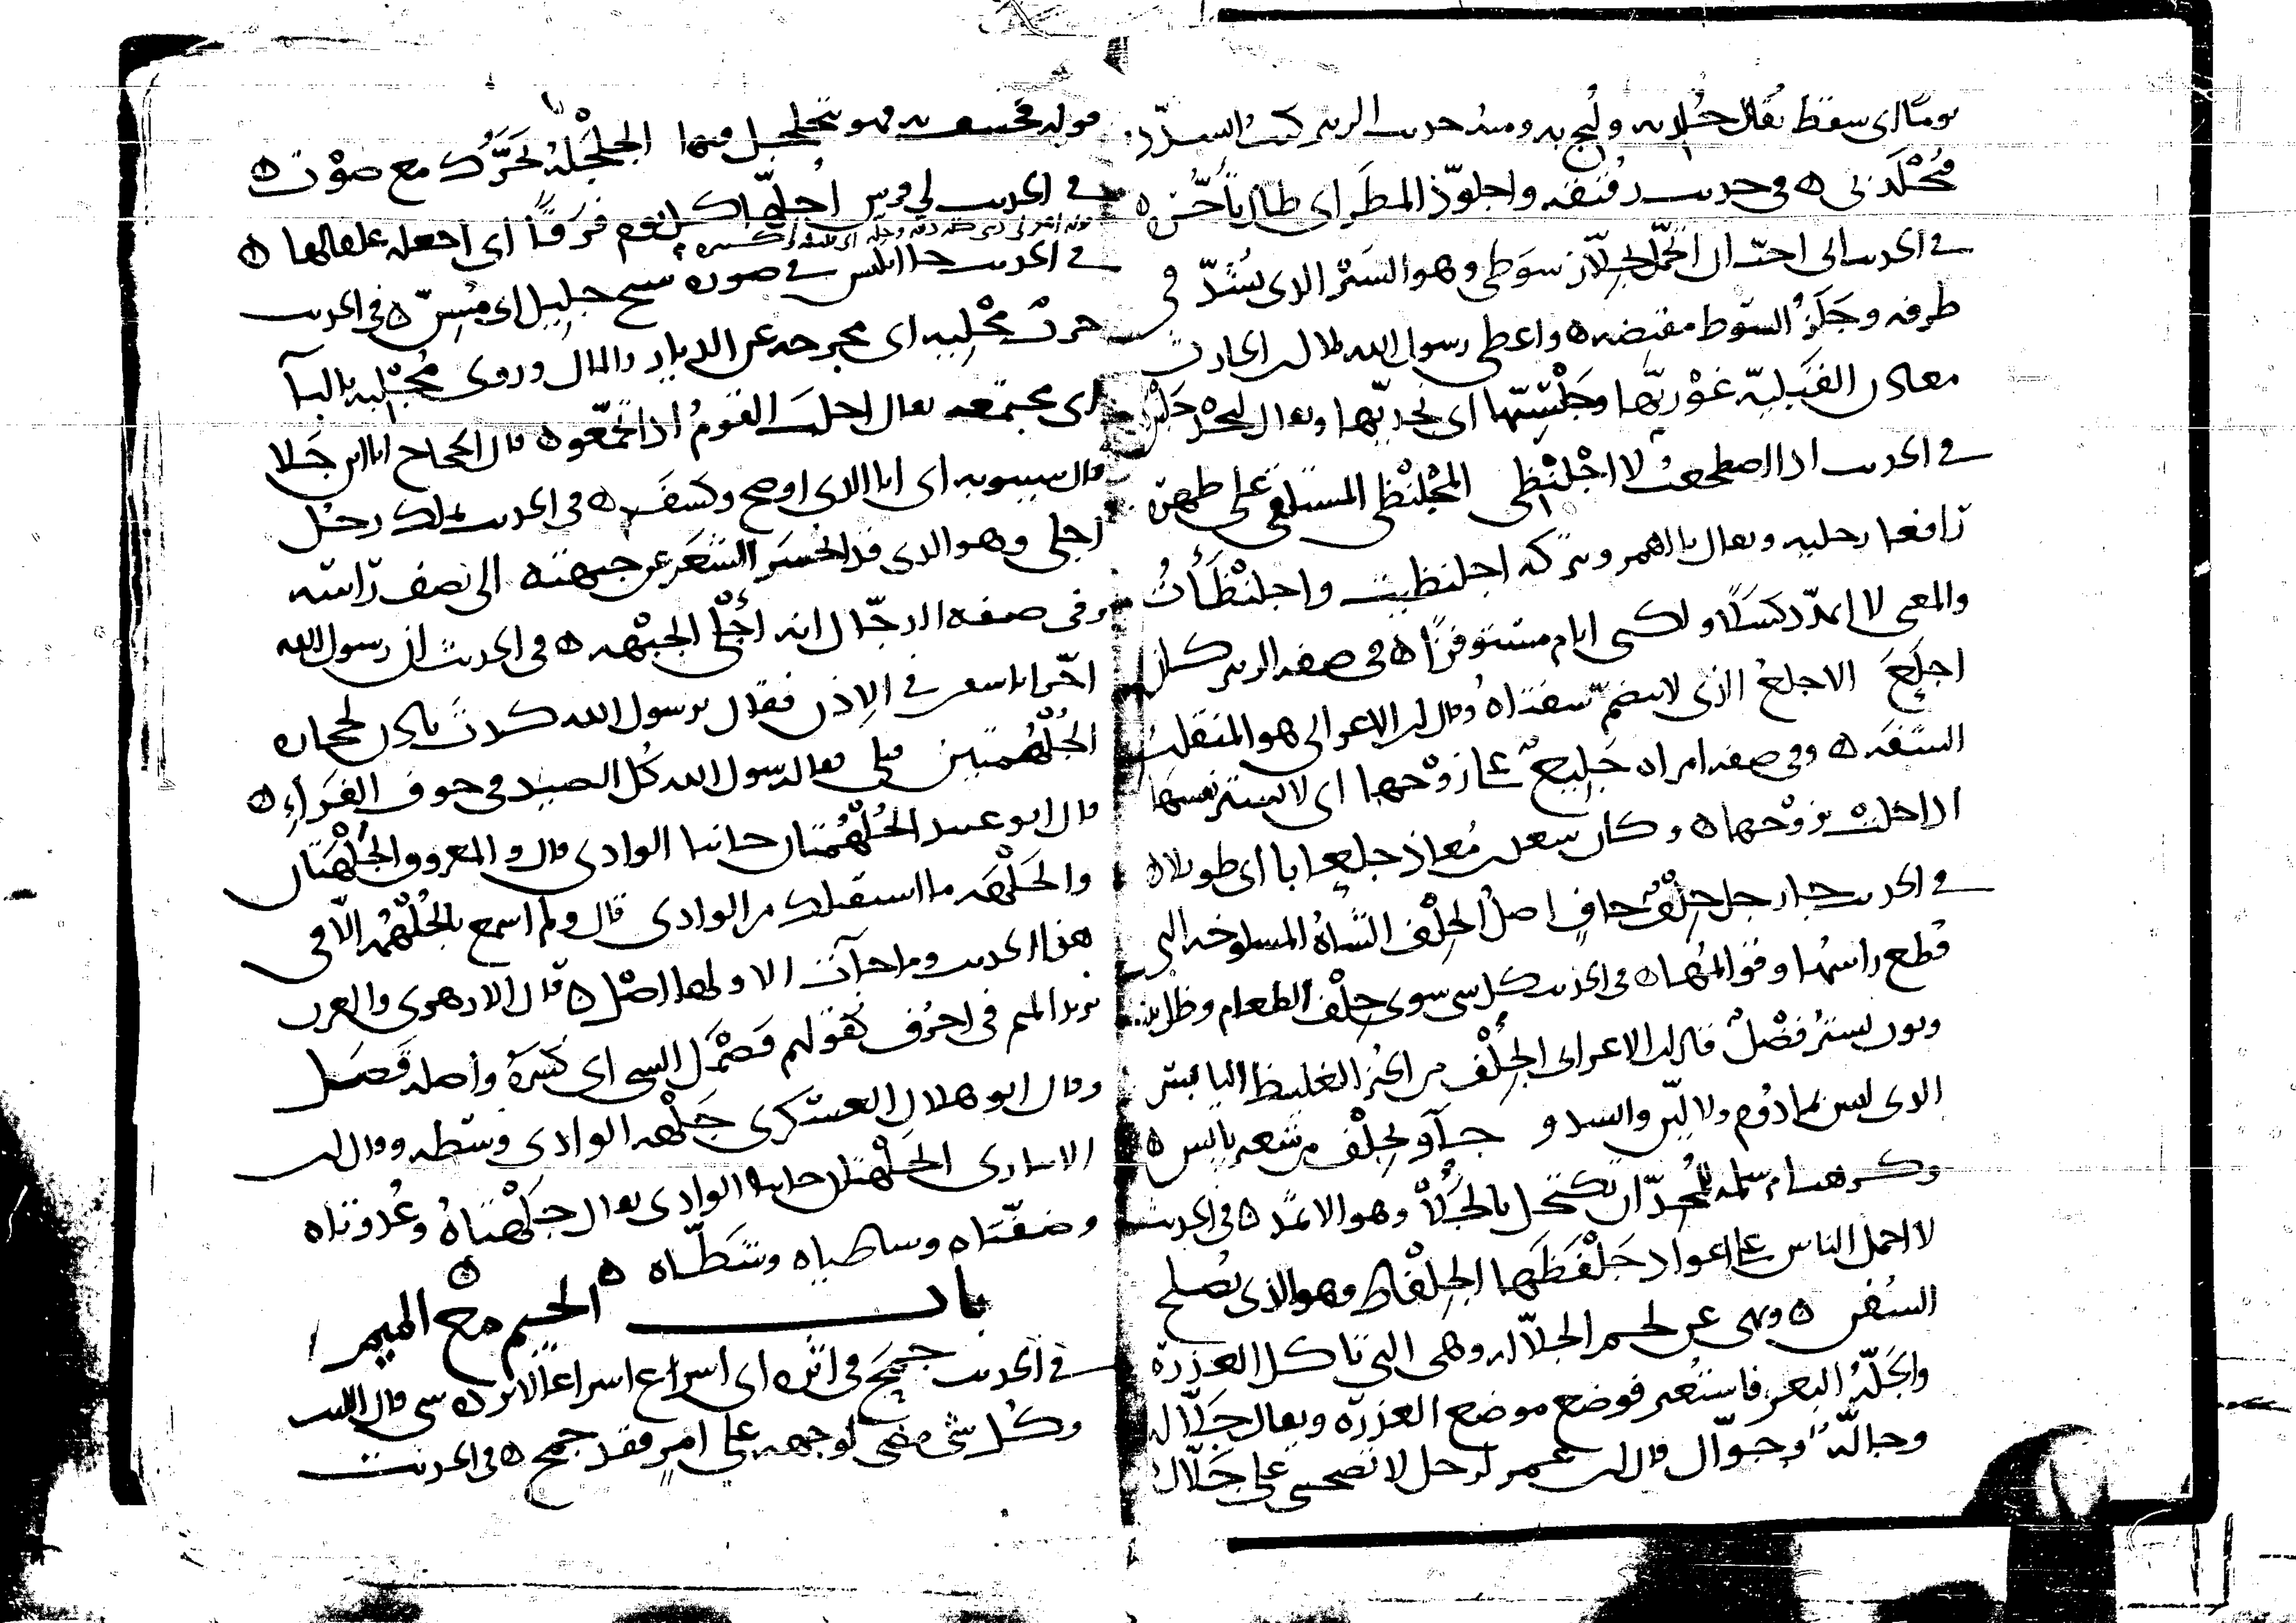 يومًا اى سقط يقال جُلِد به ولُبِج به ومنه حديث الزبير كنت اتشدد
فيُجْلَد بى ه فى حديث رقيقة واجلوّذ المطر اى طال تأخّره
فى الحديث انى احبّ ان اتجمّل بجِلاز سوطى وهو السَير الذى يُشَدّ فى
طرفه وجَلْزُ السَّوط مقبضه ه واعطى رسول الله بلال بن الحارث
معادن القَبَليّة غَوْريّها وجَلْسيّها اى نجديّها ويقال لنجد جَلْس
فى الحديث اذا اضطجعت لا اجْلَنْظِى المُجْلَنْظِى المستلقى على ظهره
رافعا رجليه ويقال بالهمز وتركه اجلنظيت واجلنْظَأْتُ
والمعنى لا اتمدّد كسَلًا ولكنى انام مستوفزًا ه فى صفة الزبير كان
اجلَعَ الاجلع الذى لا ينضمّ شفتاه وقال ابن الاعرابى هو المنقلب
الشفة ه وفى صفة امراة جليعٌ على زوجها اى لا تستر نفسها
اذا خلت بزوجها ه وكان سعد بن معاذ جلعابا اى طويلا ه
فى الحديث فجاء رجل جِلْفٌ جافٍ اصلُ الجِلْف الشاة المسلوخة التى
قُطع راسُها وقوائمُها ه فى الحديث كل شى سوى جِلْف الطعام وظل بيت
وثوب يستُر فضْلٌ قال ابن الاعرابى الجِلْف من الخبز الغليظ اليابس
الذى ليس بمأدُوم ولا ليّن وانشد جآو بجِلْف من شعير يابس ه
وكرهت ام سلمة للمُحِدّ ان تكتحل بالجَلا وهو الاثمد ه فى الحديث
لا احمل الناس على اعواد جَلْفَظَها الجِلْفاظ وهو الذى يُصلح
السُفن ه ونهى عن لحم الجلّالة وهى التى تاكل العذرة
والجَلّةُ البعر فاستُعير فوضع موضع العذرة ويقال جَلّالة
وجالّة وجوّال قال ابن عمر لرجل لا تصحبنى على جَلّال
قوله فخُسف به فهو يتجلجل فيها الجَلجَلة تحرّك مع صَوْت ه
فى الحديث لى فرس اُجِلّها كل يوم فرَقًا اى اجعله علفا لها ه
فى الحديث جا ابليس فى صورة شيخ جليل اى مُسِنّ ه فى الحديث
حربٌ مُجْلية اى مخرجة عن الديار والمال وروى مُجْلِبة بالبآ
اى مجتمعة يقال اجلبَ القومُ اذا تجمّعوه قال الحجاج انا ابن جَلا
قال سيبويه اى انا الذى اوضح وكشف ه فى الحديث يملك رجل
اجلى وهو الذى قد انحسر الشعَر عن جبهته الى نصف رَاسه
وفى صفة الدجّال انه أجْلَى الجَبْهه ه فى الحديث ان رسول الله
اخّر ابا سفين فى الاِذن فقال يرسول الله كدتَ تاذن لحجارة
الجُلْهُمتين قبلى فقال رسول الله كُل الصيد فى جوف الفَرَاءِ ه
قال ابو عبيد الجُلْهُمتان جانبا الوادى قال والمعروف الجَلْهتان
والجَلْهَة ما استقبلك من الوادى قال ولم اسمع بالجُلْهُمة الّا فى
هذا الحديث وما جآت الا ولها اصْل ه قال الازهرى والعرب
تزيد الميم فى احرُف كقولهم قَصْمَل الشى اى كسَرَهُ واصله قَصَل
وقال ابو هلال العسكرى جَلْهة الوادى وسَطه وقال ابن
الانبارى الجَلْهتان جانبا الوادى يقال جَلْهتاهُ وعُدوتاه
وضفّتاه وشاطياه وشَطّاه ه
باب الجيم مع الميم
فى الحديث جمَحَ فى اثره اى اسرع اسراعًا لا يرده شى قال الليث
وكُل شى مضى لوجهه على امرٍ فقد جمح ه فى الحديث